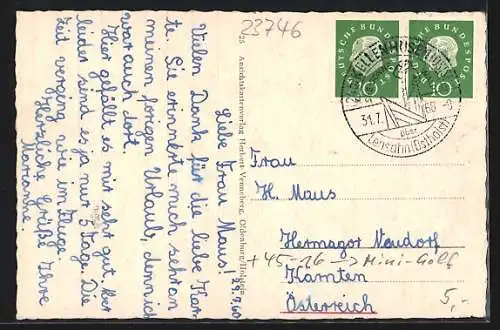 23746
Liebe Frau Maus!
29.7.60
Vielen Dank für die liebe Kar-
te. Sie erinnerte mich sehr an
meinen forigen Urlaub, denn ich
war auch dort.
Hier gefällt es mir sehr gut. Aber
leider sind es ja nur 5 Tage. Die
Zeit verging wie im Fluge.
Herzliche Grüße Ihre
Marianne.
25 Ansichtskartenverlag Herbert Venneberg, Oldenburg/Holstein
DEUTSCHE BUNDESPOST
10
DEUTSCHE BUNDESPOST
10
31.7.
60
über
Lensahn (Ostholst)
Frau
H. Maus
Hermagor Neudorf
+45-26 → Mini-Golf
Kärnten
Österreich
5,-